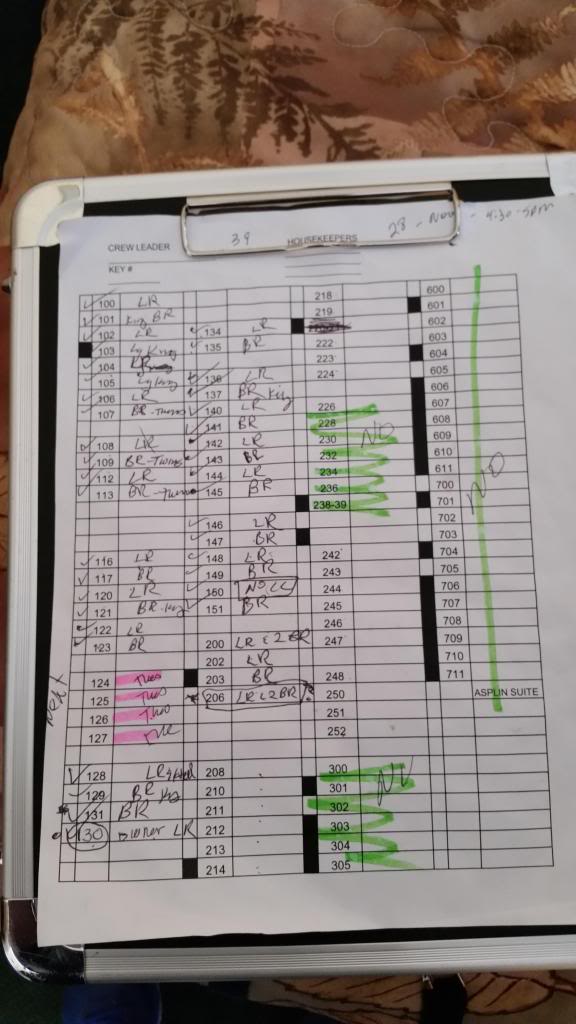 CREW LEADER 39 HOUSEKEEPERS 28 - Nov - 9:30 - 5pm
KEY #
100 LR
101 King BR
102 LR
103 Lg King
104
105 Lg King
106 LR
107 BR-Twins
108 LR
109 BR-Twins
112 LR
113 BR-Twins
116 LR
117 BR
120 LR
121 BR-King
122 LR
123 BR
124
125
126
127
128 LR
129 BR King
131 BR
130 owner LR
134 LR
135 BR
136 LR
137 BR King
140 LR
141 BR
142 LR
143 BR
144 LR
145 BR
146 LR
147 BR
148 LR
149 BR
150
151 BR
200 LR & 2 BR
202 LR
203 BR
206 LR & 2 BR ?
208
210
211
212
213
214
218
219
222
223
224
226
228
230 NO
232
234
236
238-39
242
243
244
245
246
247
248
250
251
252
300
301 NO
302
303
304
305
600
601
602
603
604
605
606
607
608
609
610
611
700
701 NO
702
703
704
705
706
707
708
709
710
711
ASPLIN SUITE